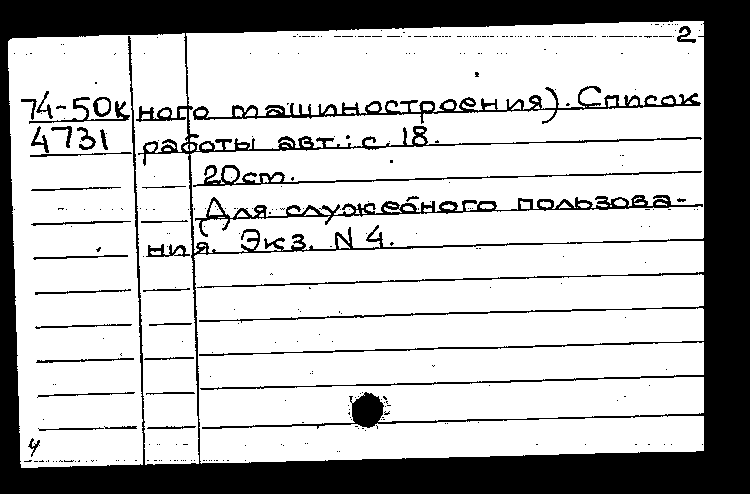 2
74-50к ного машиностроения). Список
4731 работы авт.: с. 18.
20см.
Для служебного пользова-
ния. Экз. N 4.
4